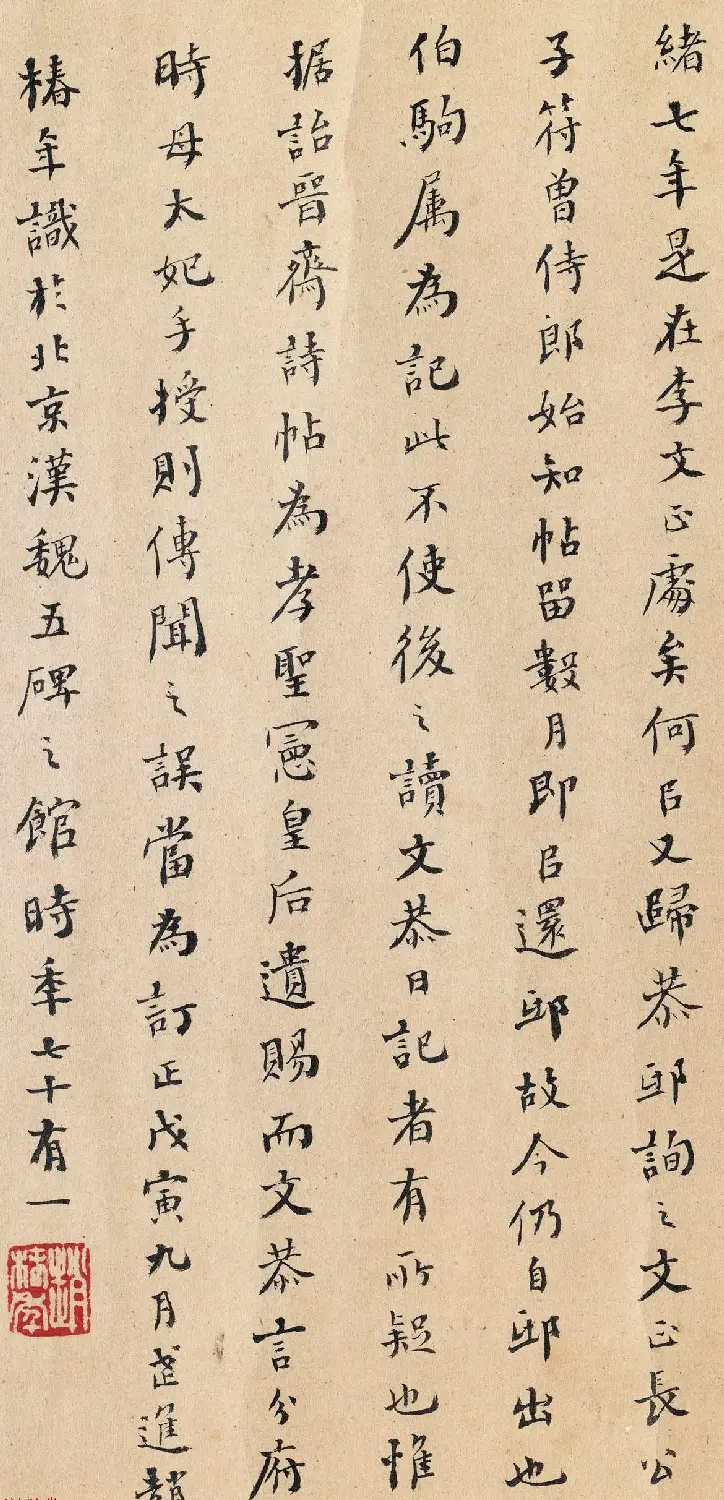 緒七年是在李文正處矣何㠯又歸恭邸詢之文正長公
子符曾侍郎始知帖留數月即㠯還邸故今仍自邸出也
伯駒属為記此不使後之讀文恭日記者有所疑也惟
据詒晉齋詩帖為孝聖憲皇后遺賜而文恭言分府
時母太妃手授則傳聞之誤當為訂正戊寅九月武進趙
椿年識於北京漢魏五碑之館時年七十有一
趙椿年